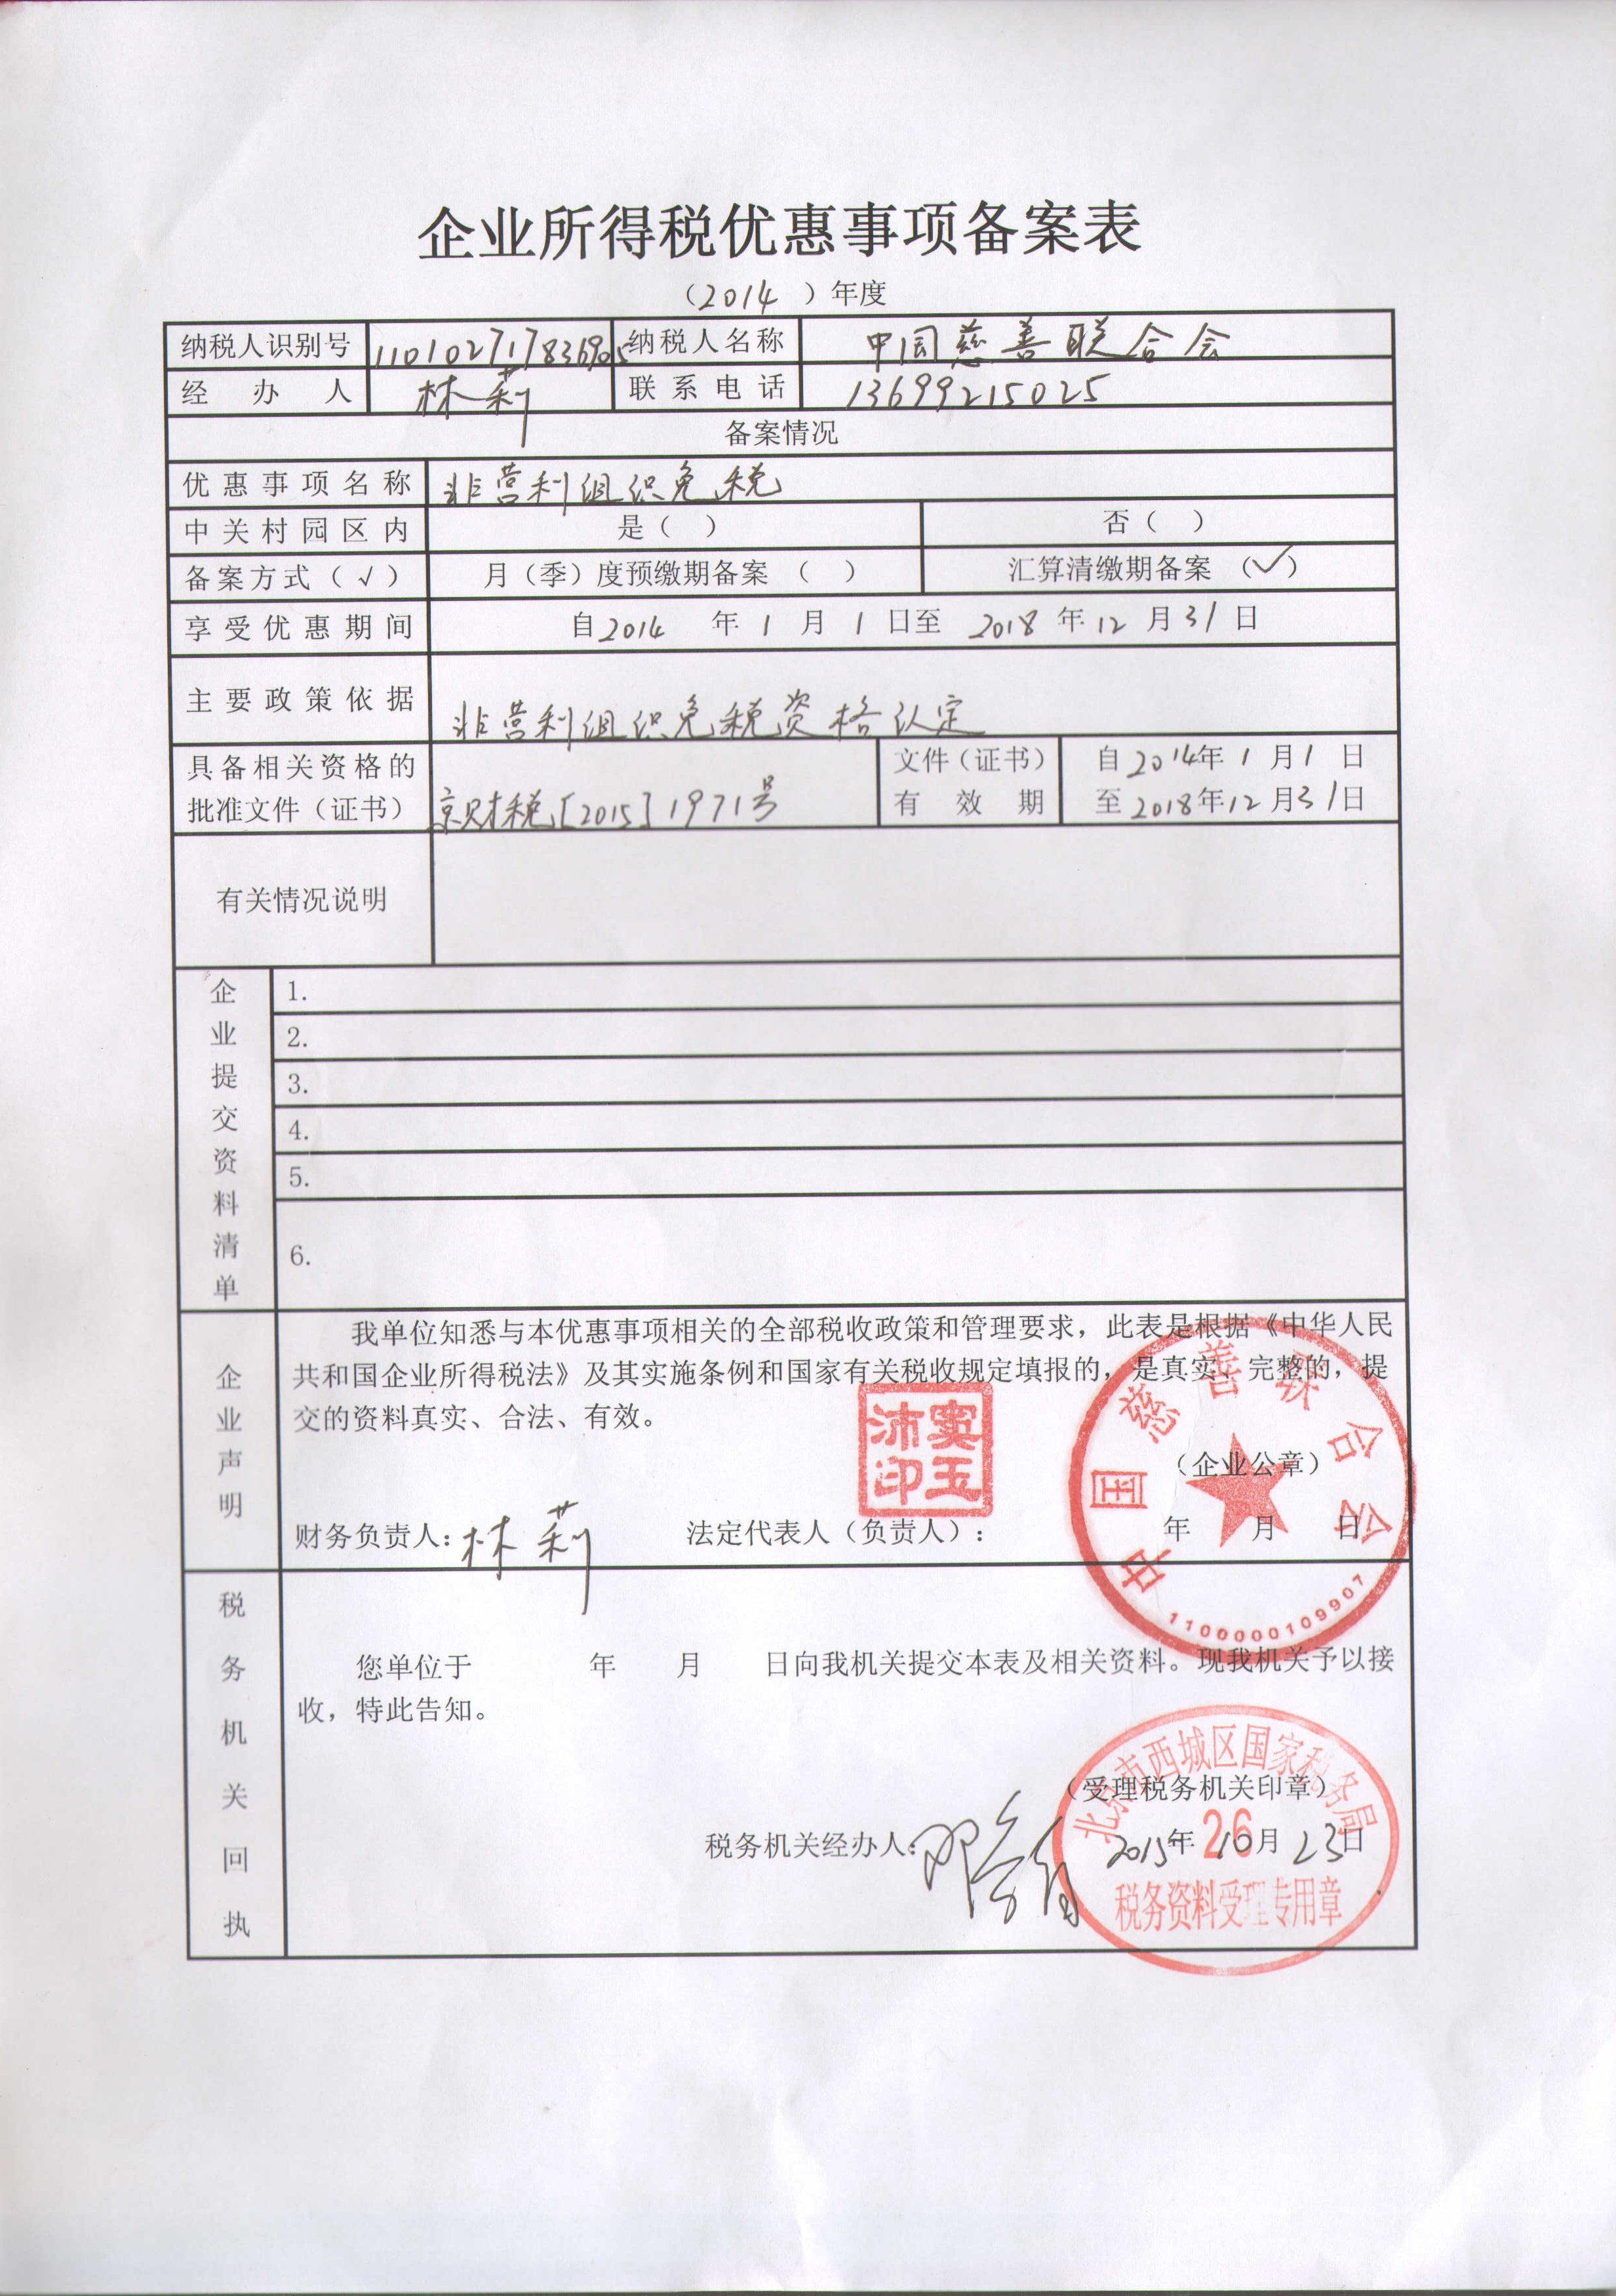 企业所得税优惠事项备案表
（2014 ）年度
纳税人识别号 110102717836905 纳税人名称 中国慈善联合会
经办人 林莉 联系电话 13699215025
备案情况
优惠事项名称 非营利组织免税
中关村园区内 是（ ） 否（ ）
备案方式（√） 月（季）度预缴期备案 （ ） 汇算清缴期备案 （✓）
享受优惠期间 自2014 年 1 月 1 日至 2018 年 12 月 31 日
主要政策依据 非营利组织免税资格认定
具备相关资格的 文件（证书） 自2014年 1 月 1 日
批准文件（证书） 京财税[2015]1971号 有效期 至2018年12月31日
有关情况说明
企业提交资料清单
1.
2.
3.
4.
5.
6.
企业声明
我单位知悉与本优惠事项相关的全部税收政策和管理要求，此表是根据《中华人民
共和国企业所得税法》及其实施条例和国家有关税收规定填报的，是真实、完整的，提
交的资料真实、合法、有效。
窦玉沛印
（企业公章）
财务负责人：林莉 法定代表人（负责人）： 年 月 日
中国慈善联合会
1100000109907
税务机关回执
您单位于 年 月 日向我机关提交本表及相关资料。现我机关予以接
收，特此告知。
北京市西城区国家税务局
（受理税务机关印章）
税务机关经办人： 2015年 10月 23日
26
税务资料受理专用章